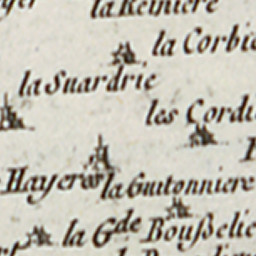 la Reiniere
la Corbie
la Suardrie
les Cordi
Hayeres
la Guitonniere
la Gde Boußelie